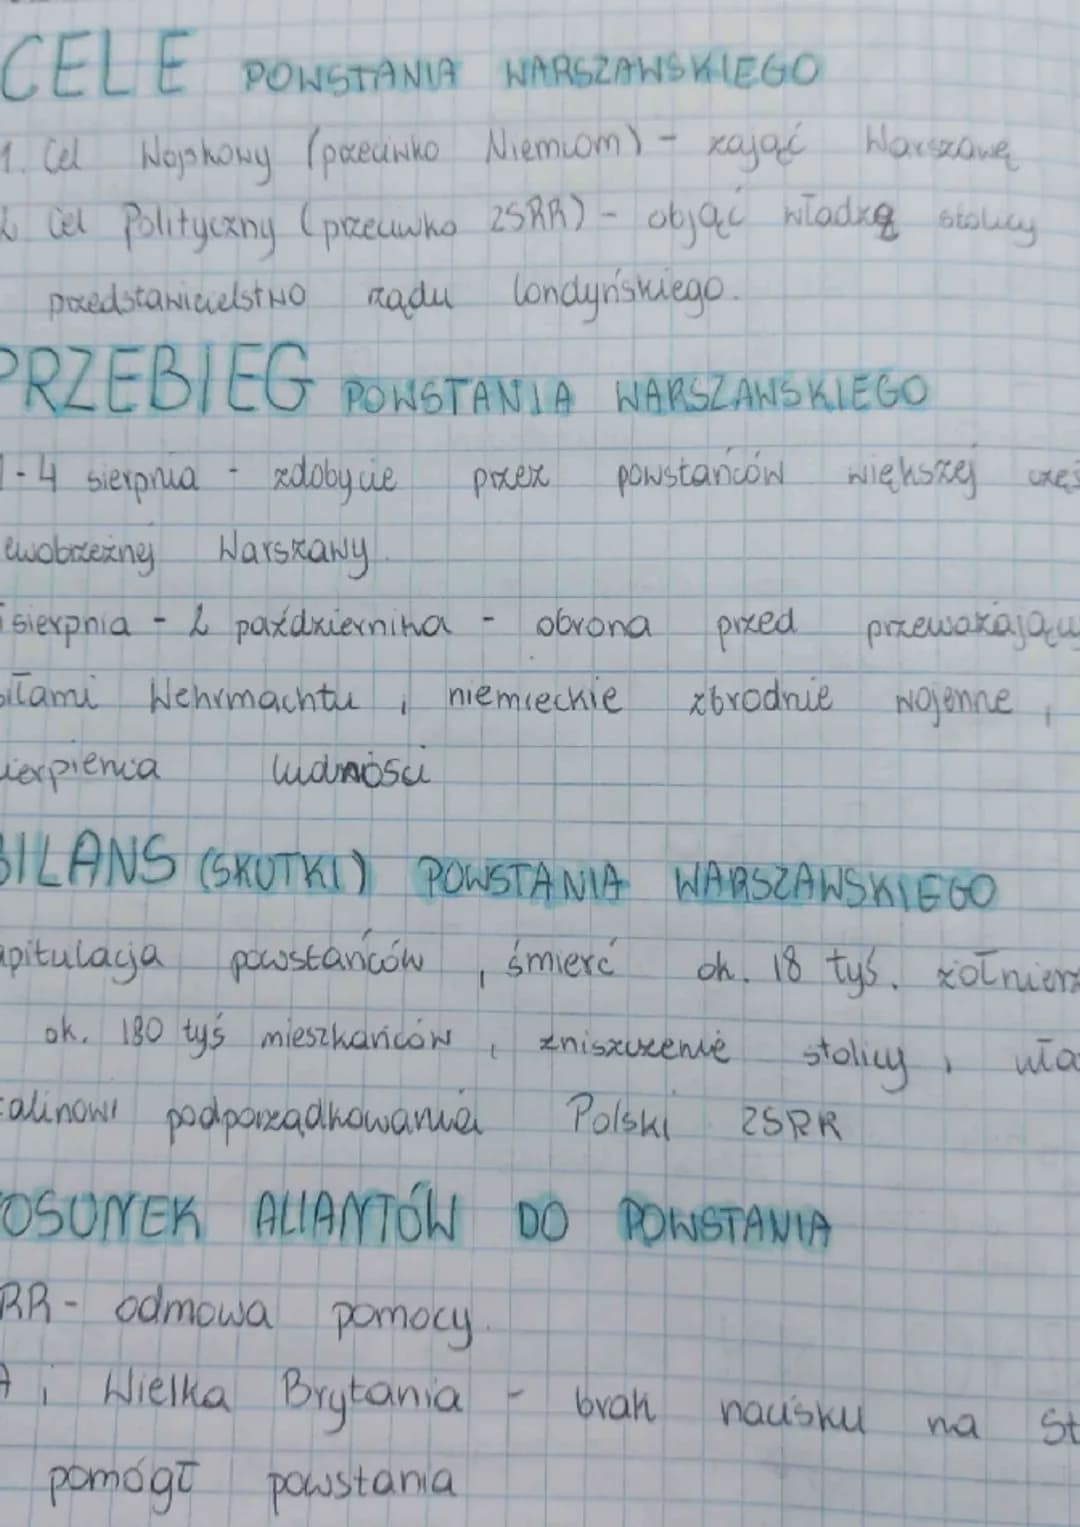 CELE POWSTANIA WARSZAWSKIEGO
1. Cel Wojskowy (przeciwko Niemcom) - zająć Warszawę
2. Cel Polityczny (przeciwko ZSRR) - objąć władzę stolicy
przedstawicielstwo rządu londyńskiego.
PRZEBIEG POWSTANIA WARSZAWSKIEGO
1-4 sierpnia - zdobycie przez powstańców większej częś
ewobrzeżnej Warszawy.
sierpnia - 2 października - obrona przed przeważający
siłami Wehrmachtu, niemieckie zbrodnie wojenne,
cierpienia ludności
BILANS (SKUTKI) POWSTANIA WARSZAWSKIEGO
apitulacja powstańców, śmierć ok. 18 tyś. żołnierz
ok. 180 tyś mieszkańców, zniszczenie stolicy, uła
talinowi podporządkowania Polski ZSRR
OSUNEK ALIANTÓW DO POWSTANIA
RR - odmowa pomocy.
A i Wielka Brytania - brak nacisku na St
pomógł powstania